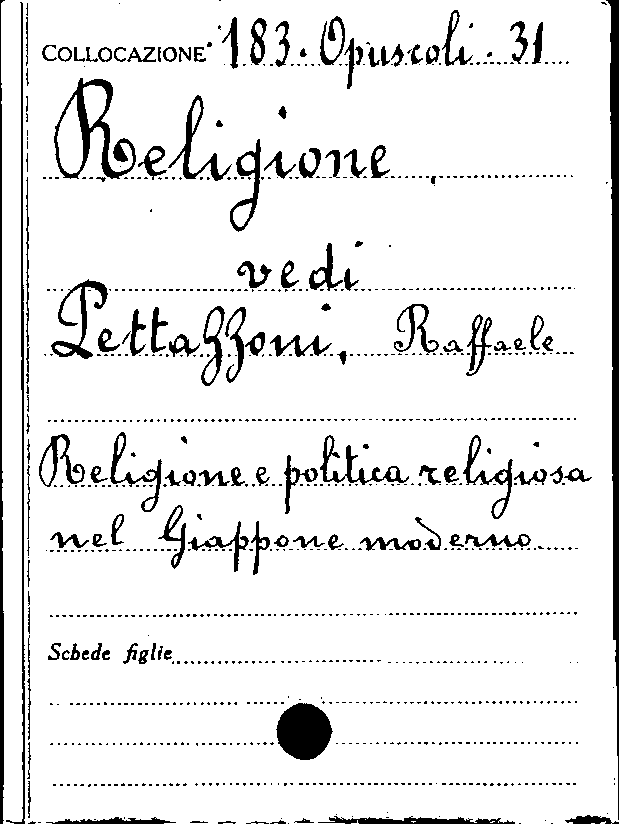 COLLOCAZIONE 183. Opuscoli. 31
Religione
vedi
Pettazzoni, Raffaele
Religione e politica religiosa
nel Giappone moderno
Schede figlie